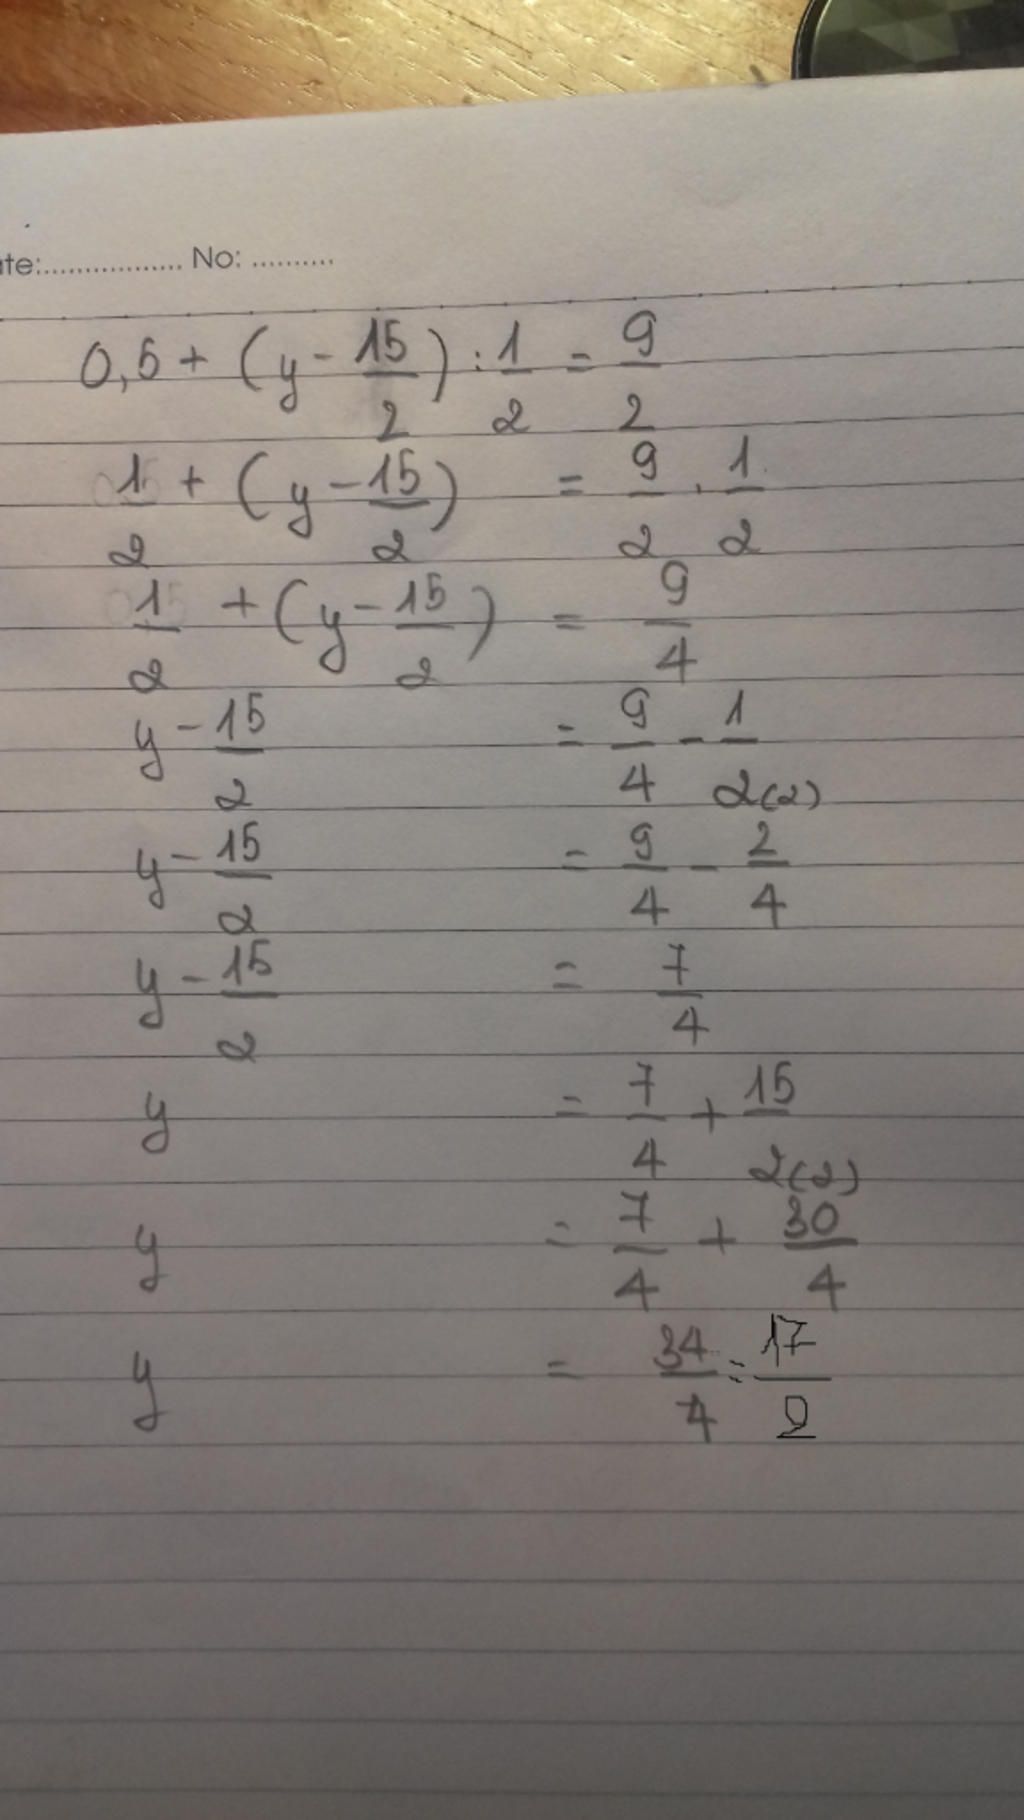 ate:................. No: ..........
0,5 + (y - 15/2) : 1/2 = 9/2
1/2 + (y - 15/2) = 9/2 . 1/2
1/2 + (y - 15/2) = 9/4
y - 15/2 = 9/4 - 1/2(2)
y - 15/2 = 9/4 - 2/4
y - 15/2 = 7/4
y = 7/4 + 15/2(2)
y = 7/4 + 30/4
y = 34/4 = 17/2